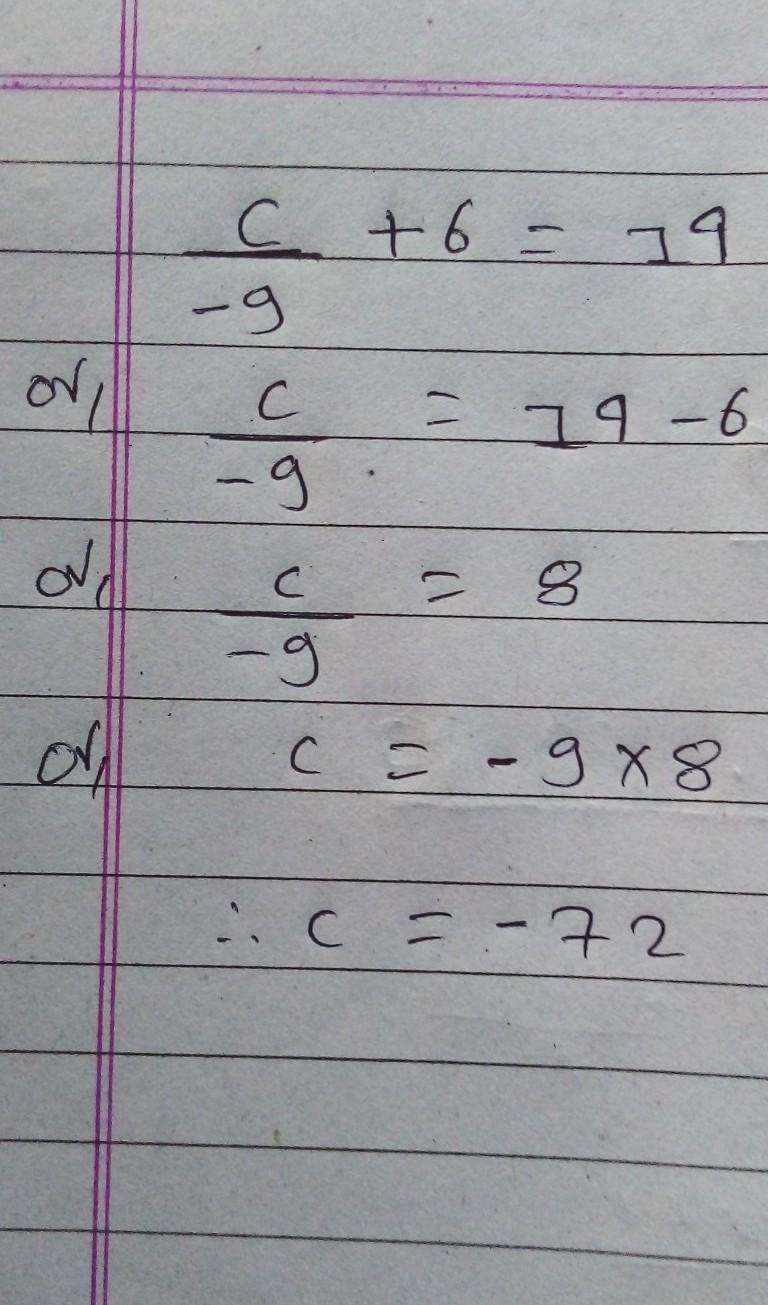 c/-9 + 6 = 14
or, c/-9 = 14 - 6
or, c/-9 = 8
or, c = -9 × 8
∴ c = -72